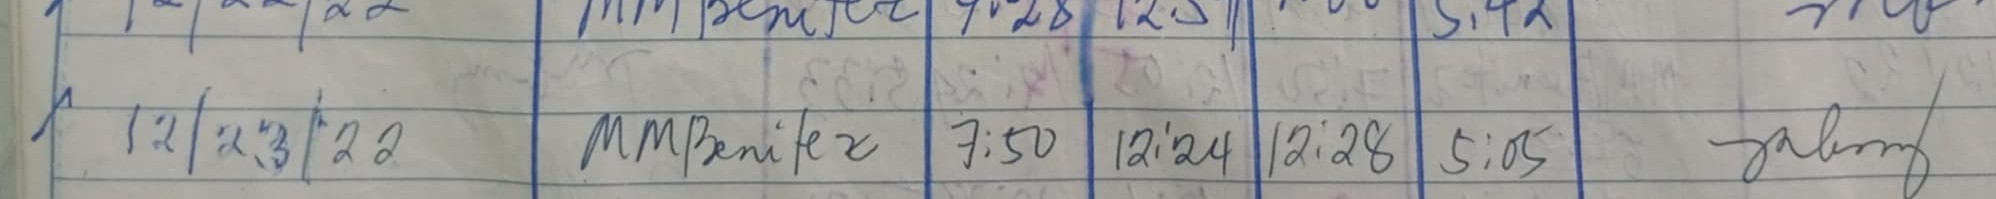 12/22/22 MMBenitez 12:51 5:42
12/23/22 MMBenitez 7:50 12:24 12:28 5:05